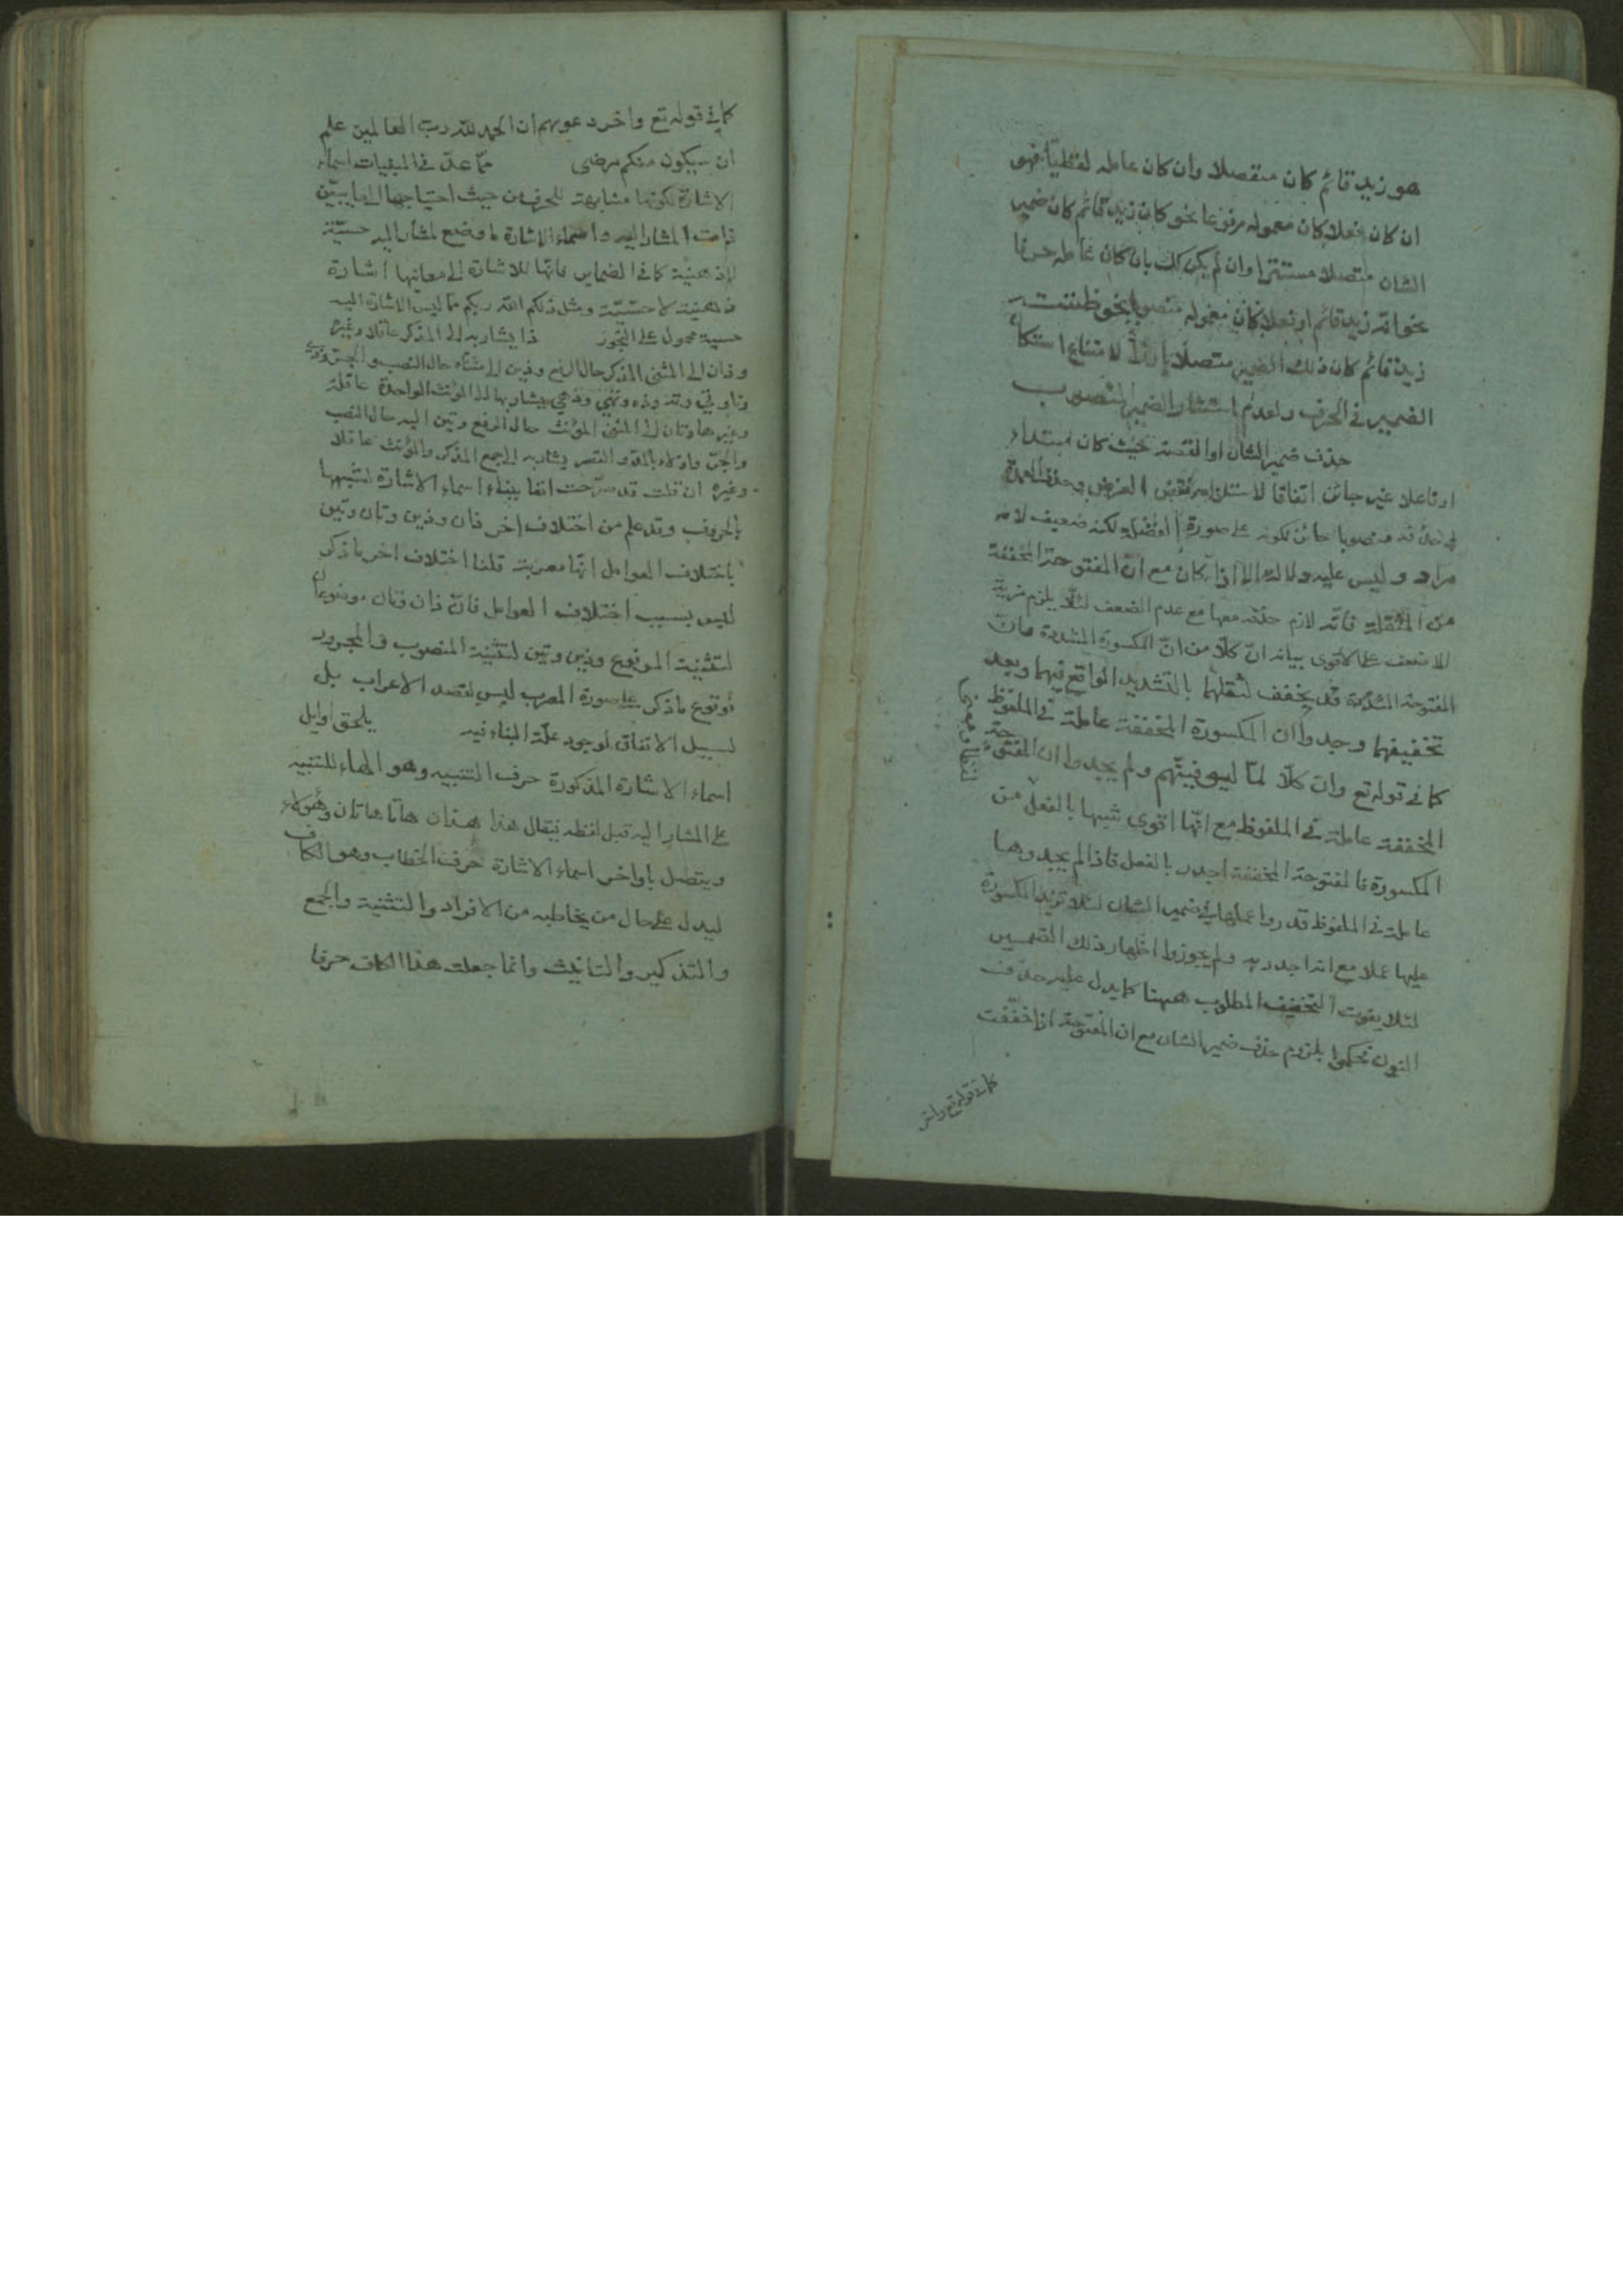 هو زيد قائم كان منفصلا وان كان عامله لفظيا فهو
ان كان فعلا كان معموله مرفوعا نحو كان زيد قائم كان ضمير
الشان متصلا مستترا وان لم يكن كك بان كان عامله حرفا
نحو انه زيد قائم او فعلا كان معموله منصوبا نحو ظننته
زيد قائم كان ذلك الضمير متصلا بارزا لامتناع استتكا
الضمير في الحرف ولعدم استتار الضمير المنصوب
حذف ضمير الشان او القصة حيث كان مبتداء
او فاعلا غير جائز اتفاقا لاستلزامه نقض الغرض وحذف العمدة
منصوبا جائز لكونه على صورة الفضلة لكنه ضعيف لانه
مراد وليس عليه دلالة الا اذا كان مع ان المفتوحة المخففة
من المثقلة فانه لازم حذفه معها مع عدم الضعف لئلا يلزم مزية
للاضعف على الاقوى بيانه ان كلا من ان المكسورة المشددة وان
المفتوحة المشددة قد يخفف لثقلهما بالتشديد الواقع فيهما وبعد
تخفيفهما وجدوا ان المكسورة المخففة عاملة في الملفوظ
كما في قوله تع وان كلا لما ليوفينهم ولم يجدوا ان المفتوحة
المخففة عاملة في الملفوظ مع انها اقوى شبها بالفعل من
المكسورة فالمفتوحة المخففة اجدر بالفعل فاذا لم يجدوها
عاملة في الملفوظ قدروا عملها في ضمير الشان لئلا تزيد المكسورة
عليها عملا مع انها اجدر به ولم يجوزوا اظهار ذلك الضمير
لئلا يفوت التخفيف المطلوب ههنا كما يدل عليه حذف
النون فحكموا بلزوم حذف ضمير الشان مع ان المفتوحة اذا خففت
كما في قوله تع واخر
كما في قوله تع واخر دعويهم ان الحمد لله رب العالمين علم
ان سيكون منكم مرضى مما عد في المبنيات اسماء
الاشارة لكونها مشابهة للحرف من حيث احتياجها الى ما يبين
ذات المشار اليه واسماء الاشارة ما وضع لمشار اليه حسية
لا ذهنية كما في الضماير فانها للاشارة الى معانيها اشارة
ذهنية لا حسية ومثل ذلكم الله ربكم مما ليس الاشارة اليه
حسية محمول على التجوز ذا يشار به الى المذكر عاقلا وغيره
وذان الى المثنى المذكر حال الرفع وذين الى مثناه حال النصب والجر وذي
وتا وتي وته وذه وتهي وذهي يشار بها الى المؤنث الواحدة عاقلة
وغيرها وتان الى المثنى المؤنث حال الرفع وتين اليه حال النصب
والجر واولاء بالمد والقصر يشار به الى جمع المذكر والمؤنث عاقلا
وغيره ان قلت قد صرحت انفا ببناء اسماء الاشارة لشبهها
بالحروف وقد علم من اختلاف اخر ذان وذين وتان وتين
باختلاف العوامل انها معربة قلنا اختلاف اخر ما ذكر
ليس بسبب اختلاف العوامل فان ذان وتان موضوعان
لتثنية المرفوع وذين وتين لتثنية المنصوب والمجرور
فوقوع ما ذكر على صورة المعرب ليس لقصد الاعراب بل
لسبيل الاتفاق لوجود علة البناء فيه يلحق اوايل
اسماء الاشارة المذكورة حرف التنبيه وهو الهاء للتنبيه
على المشار اليه قبل لفظه فيقال هذا هذان هاتا هاتان وهؤلاء
ويتصل باواخر اسماء الاشارة حرف الخطاب وهو الكاف
ليدل على حال من يخاطبه من الافراد والتثنية والجمع
والتذكير والتانيث وانما جعلت هذا الكاف حرفا